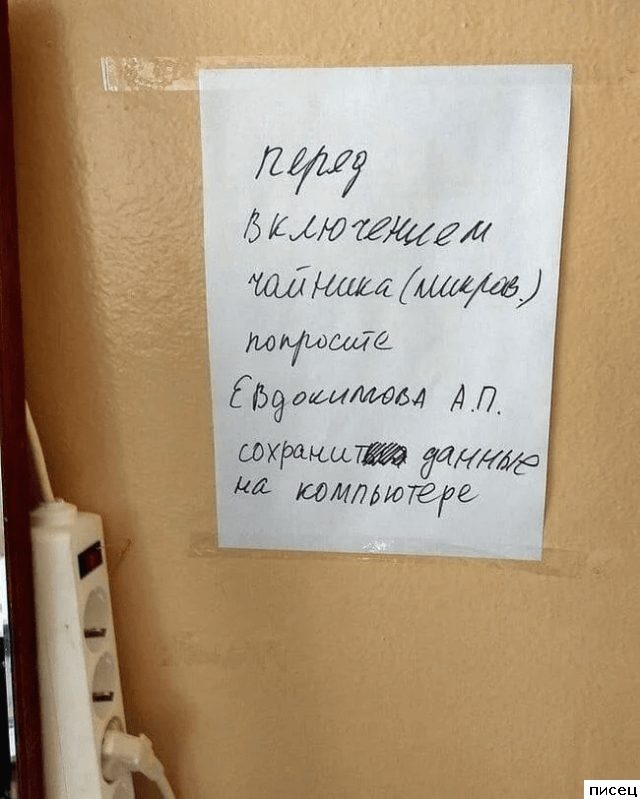 перед
включением
чайника (микров.)
попросите
Евдокимова А.П.
сохранит данные
на компьютере
писец